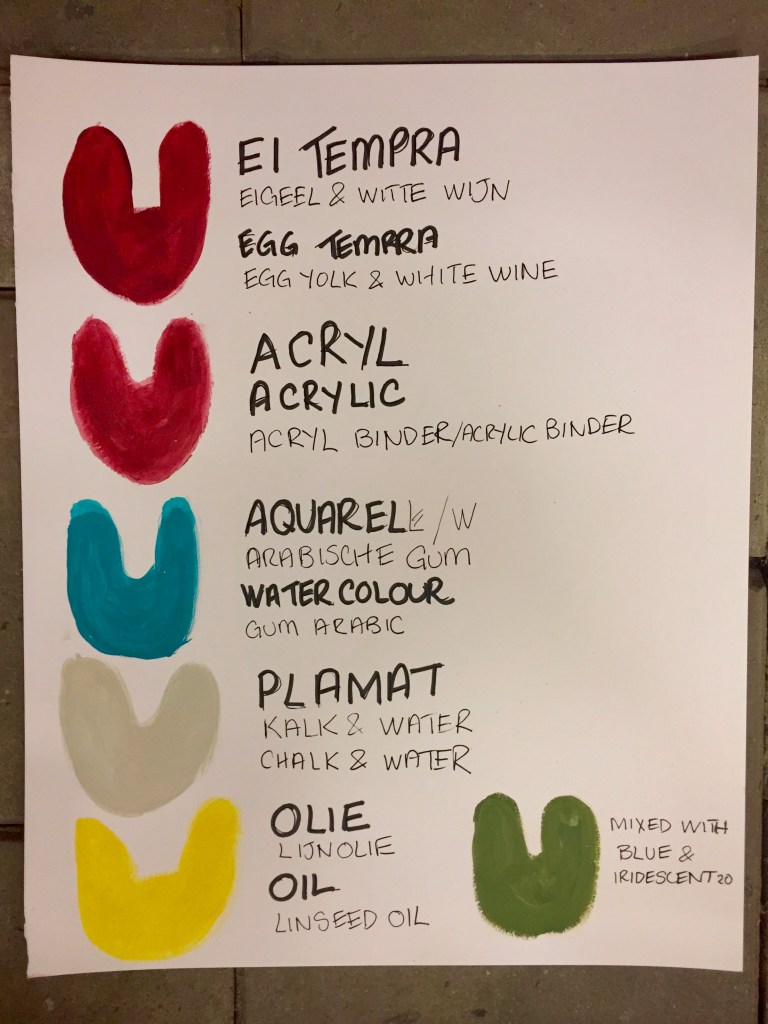 EI TEMPRA
EIGEEL & WITTE WIJN
EGG TEMPRA
EGG YOLK & WHITE WINE
ACRYL
ACRYLIC
ACRYL BINDER/ACRYLIC BINDER
AQUAREL /W
ARABISCHE GUM
WATER COLOUR
GUM ARABIC
PLAMAT
KALK & WATER
CHALK & WATER
OLIE
LIJNOLIE
OIL
LINSEED OIL
MIXED WITH
BLUE &
IRIDESCENT 20